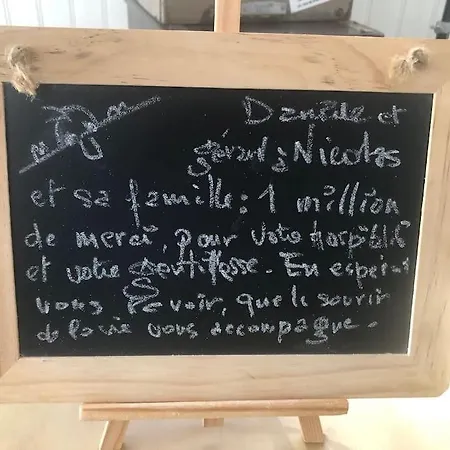 Danièle et
gérard à Nicolas
et sa famille : 1 million
de merci, pour votre hospitalité
et votre gentillesse. En espérant
vous revoir, que le sourire
de la vie vous accompagne.